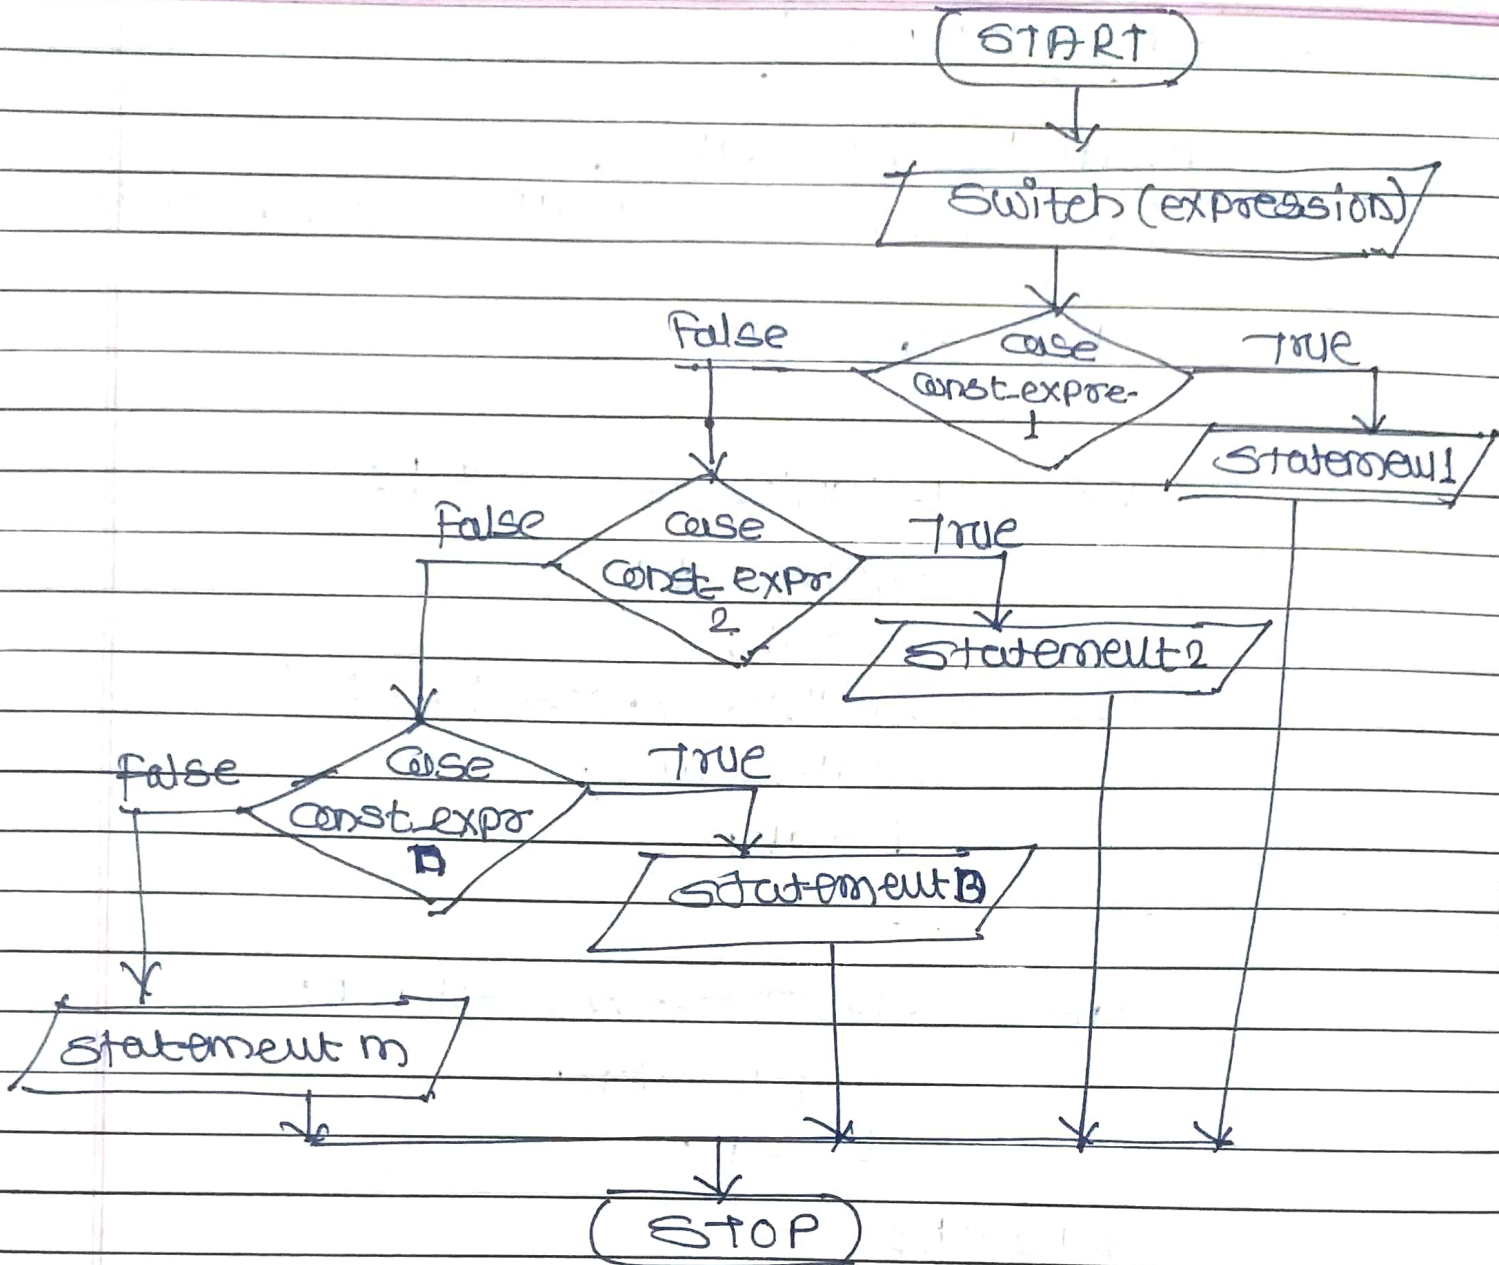 START
Switch (expression)
False
case
True
const-expre-
1
Statement1
False
case
True
const_expr
2
Statement2
False
case
True
const_expr
n
Statement n
Statement m
STOP